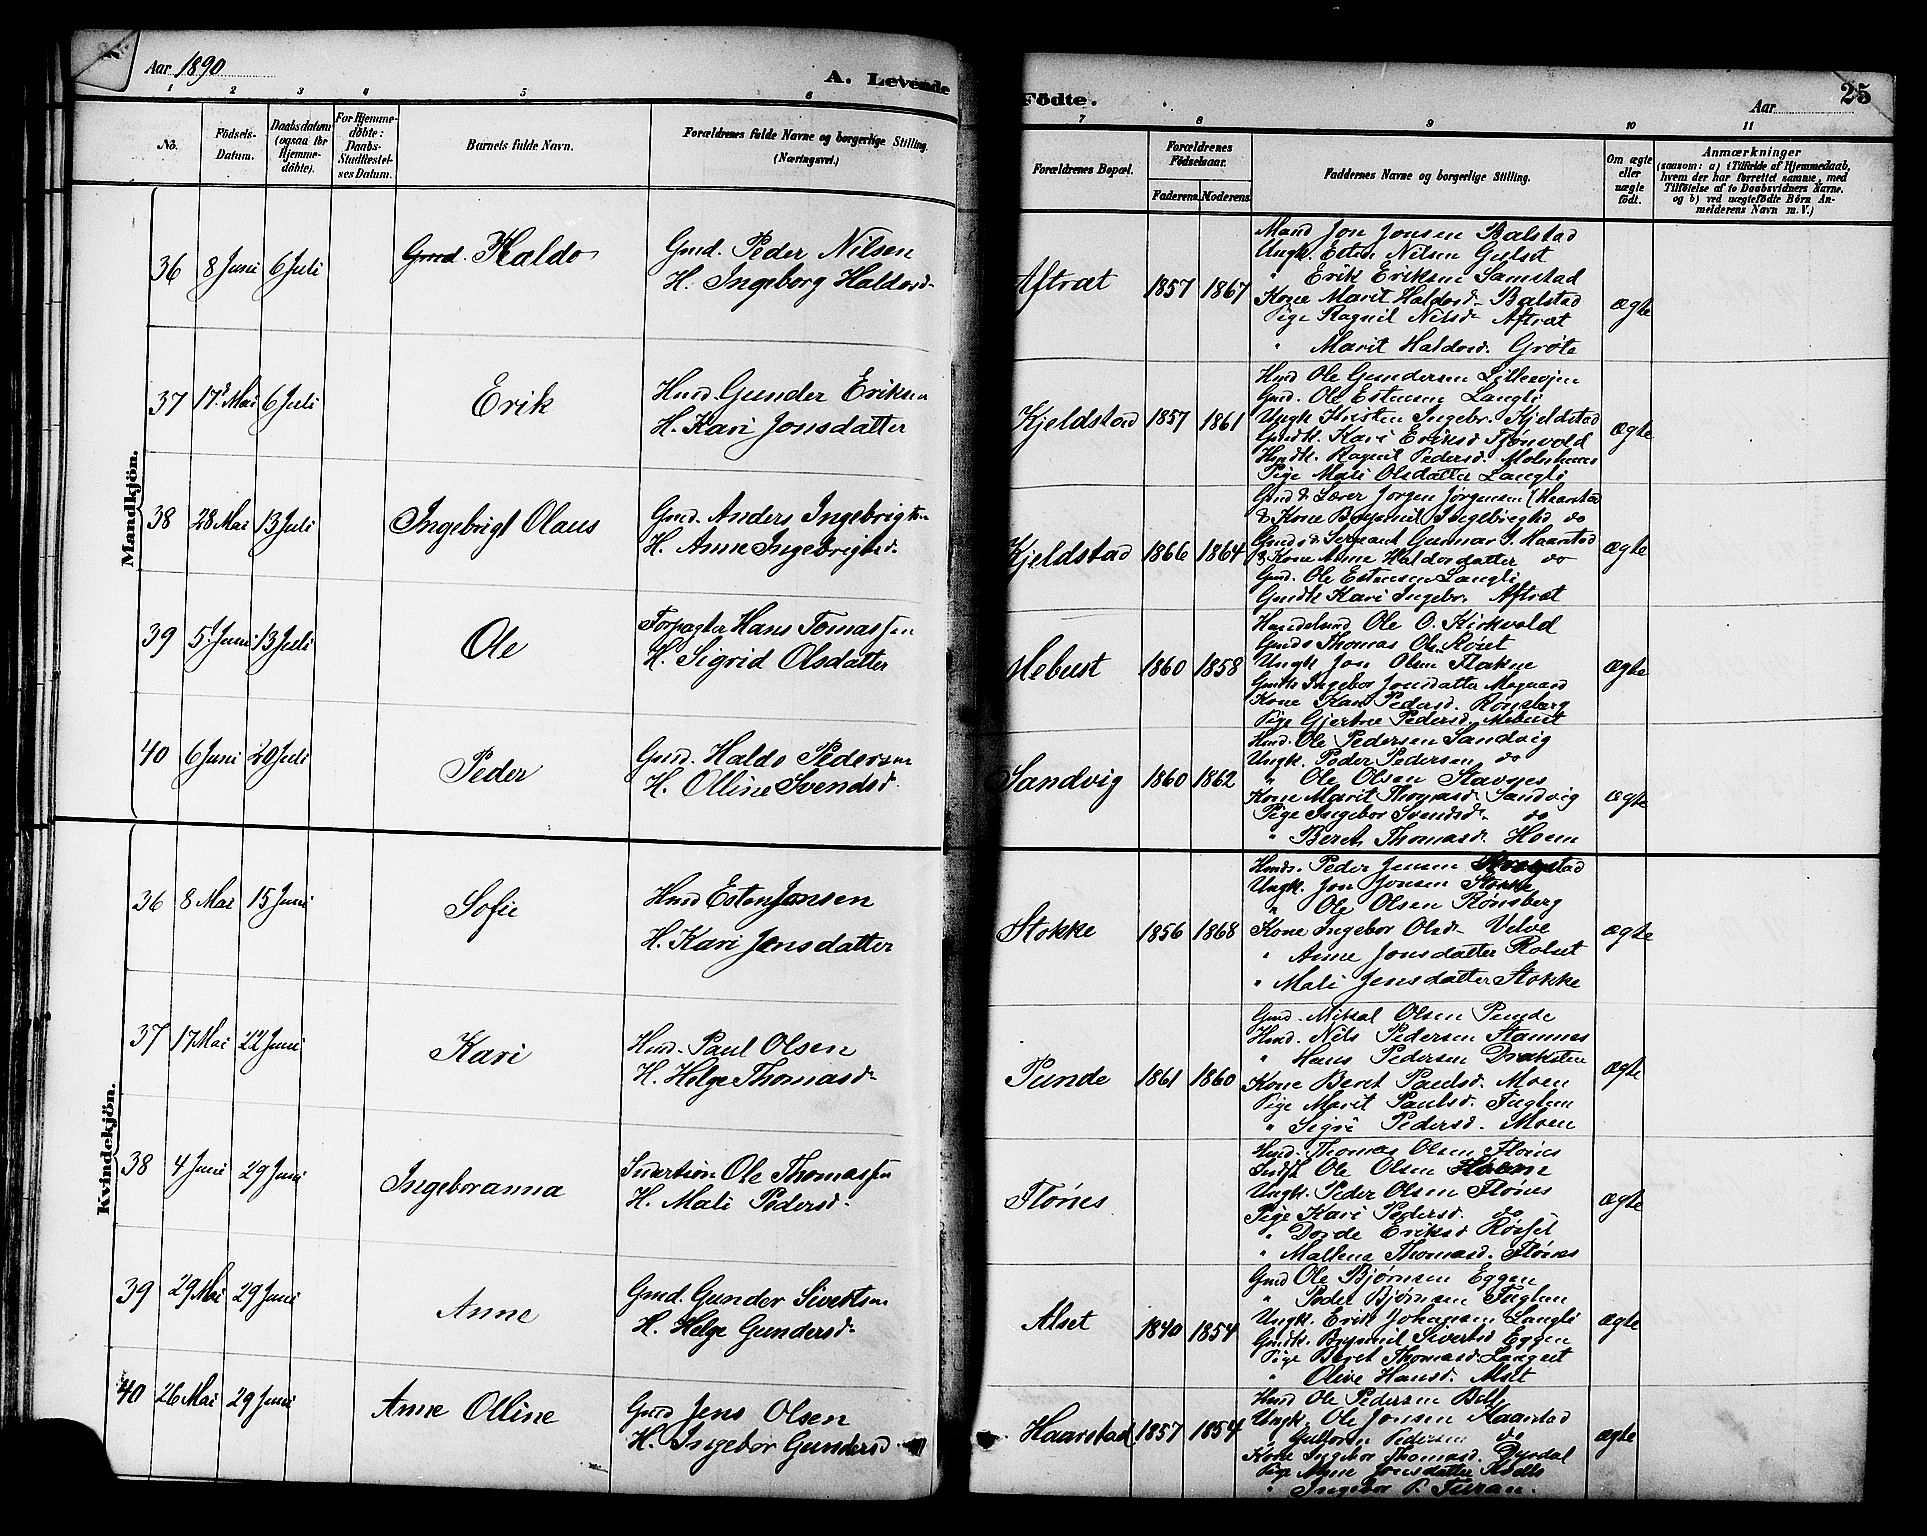 Aar 1890
A. Levende
Födte.
Aar
25
1 2 3 4 5 6
7 8 9 10 11
No.
Födsels-
Datum.
Daabsdatum
(ogsaa for
Hjemme-
döbte).
For Hjemme-
döbte:
Daabs-
Stadfæstel-
ses Datum.
Barnets fulde Navn.
Forældrenes fulde Navne og borgerlige Stilling.
(Næringsvei.)
Forældrenes Bopæl.
Forældrenes
Födselsaar.
Faderens. Moderens.
Faddernes Navne og borgerlige Stilling.
Om ægte
eller
uægte
födt.
Anmærkninger
(saasom: a) i Tilfælde af Hjemmedaab,
hvem der har forrettet samme, med
Tilföielse af to Daabsvidners Navne.
og b) ved uægtefödte Börn An-
melderens Navn m. V.)
Mandkjön.
36 8 Juni 6 Juli Gmd. Haldo
Gmd. Peder Nilsen
H. Ingeborg Haldorsd.
Aftræt 1857 1867 ægte
Mand Jon Jonsen Balstad
Ungk. Esten Nilsen Gulset
" Erik Eriksen Samstad
Kone Marit Haldosd. Balstad
Pige Ragnil Nilsd. Aftræt
" Marit Haldosd. Gröte
37 17 Mai 6 Juli Erik
Hmd. Gunder Eriksen
H. Kari Jonsdatter
Kjeldstad 1857 1861 ægte
Hmd Ole Gundersen Lilleevjen
Gmd. Ole Estensen Langli
Ungk. Kristen Ingebr. Kjeldstad
Gmdk. Kari Eriksd Fjonvold
Hmdk. Ragnil Pedersd.
Pige Mali Olsdatter Langli
38 28 Mai 13 Juli Ingebrigt Olaus
Gmd. Anders Ingebrigtsen
H. Anne Ingebrigtsd.
Kjeldstad 1866 1864 ægte
Gmd & Lærer Jørgen Jørgensen Haarstad
& Kone Brynnil Ingebrigtsd do
Gmd & Sersant Gunnar J. Haarstad
& Kone Anne Haldosdatter do
Gmd. Ole Estensen Langli
Gmdk Kari Ingebr. Aftræt
39 5 Juni 13 Juli Ole
Forpagter Hans Tomassen
H. Sigrid Olsdatter
Mebust 1860 1858 ægte
Handelsmd Ole O. Kirkvold
Gmds Thomas Ols. Röset
Ungk Jon Olsen Flakne
Gmdk Ingebor Jonsdatter Mogaard
Kone Kari Pedersd. Rönsberg
Pige Gjertine Pedersd. Mebust
40 6 Juni 20 Juli Peder
Gmd. Haldo Pedersen
H. Olline Svendsd.
Sandvig 1860 1862 ægte
Hmd. Ole Pedersen Sandvig
Ungk. Peder Pedersen do
" Ole Olsen Stavnes
Kone Marit Thomasd. Sandvig
Pige Ingebor Svendsd. do
" Beret Thomasd. Hoem
Kvindekjön.
36 8 Mai 15 Juni Sofie
Hmd Esten Jonsen
H. Kari Jensdatter
Stokke 1856 1868 ægte
Hmds. Peder Jensen
Ungk. Jon Jonsen Stokke
" Ole Olsen Rönsberg
Kone Ingebor Olsd. Velve
" Anne Jonsdatter Rolset
" Mali Jensdatter Stokke
37 17 Mai 22 Juni Kari
Hmd. Paul Olsen
H. Helge Thomasd.
Punde 1861 1860 ægte
Gmd. Mikal Olsen Punde
Hmd. Nils Pedersen Stamnes
" Hans Pedersen Draksten
Kone Beret Paulsd. Moen
Pige Marit Paulsd. Fuglem
" Sigri Pedersd. Moen
38 4 Juni 29 Juni Ingeboranna
Inderston Ole Thomassen
H. Mali Pedersd.
Flönes ægte
Hmd. Thomas Olsen Flönes
Indst Ole Olsen Hoem
Ungk. Peder Olsen Flönes
Pige Kari Pedersd. do
" Dorde Eriksd Rösset
" Mallena Thomasd. Flönes
39 29 Mai 29 Juni Anne
Gmd. Gunder Sivertsen
H. Helge Gundersd.
Alset 1840 1854 ægte
Gmd Ole Bjørnsen Eggen
" Peder Bjørnsen Fuglem
Ungk. Erik Johansen Langli
Gmdk. Brynnil Sivertsd Eggen
Pige Beret Thomasd. Langset
" Olive Hansd. Alset
40 26 Mai 29 Juni Anne Olline
Gmd Jens Olsen
H. Ingebor Gundersd.
Haarstad 1857 1854 ægte
Hmd Ole Pedersen Bell
Ungk. Ole Jonsen Haarstad
" Guttorm Pedersen do
Kone Ingebor Thomasd. Dyrdal
Pige Anne Jonsdatter
" Ingebor P. Furan.